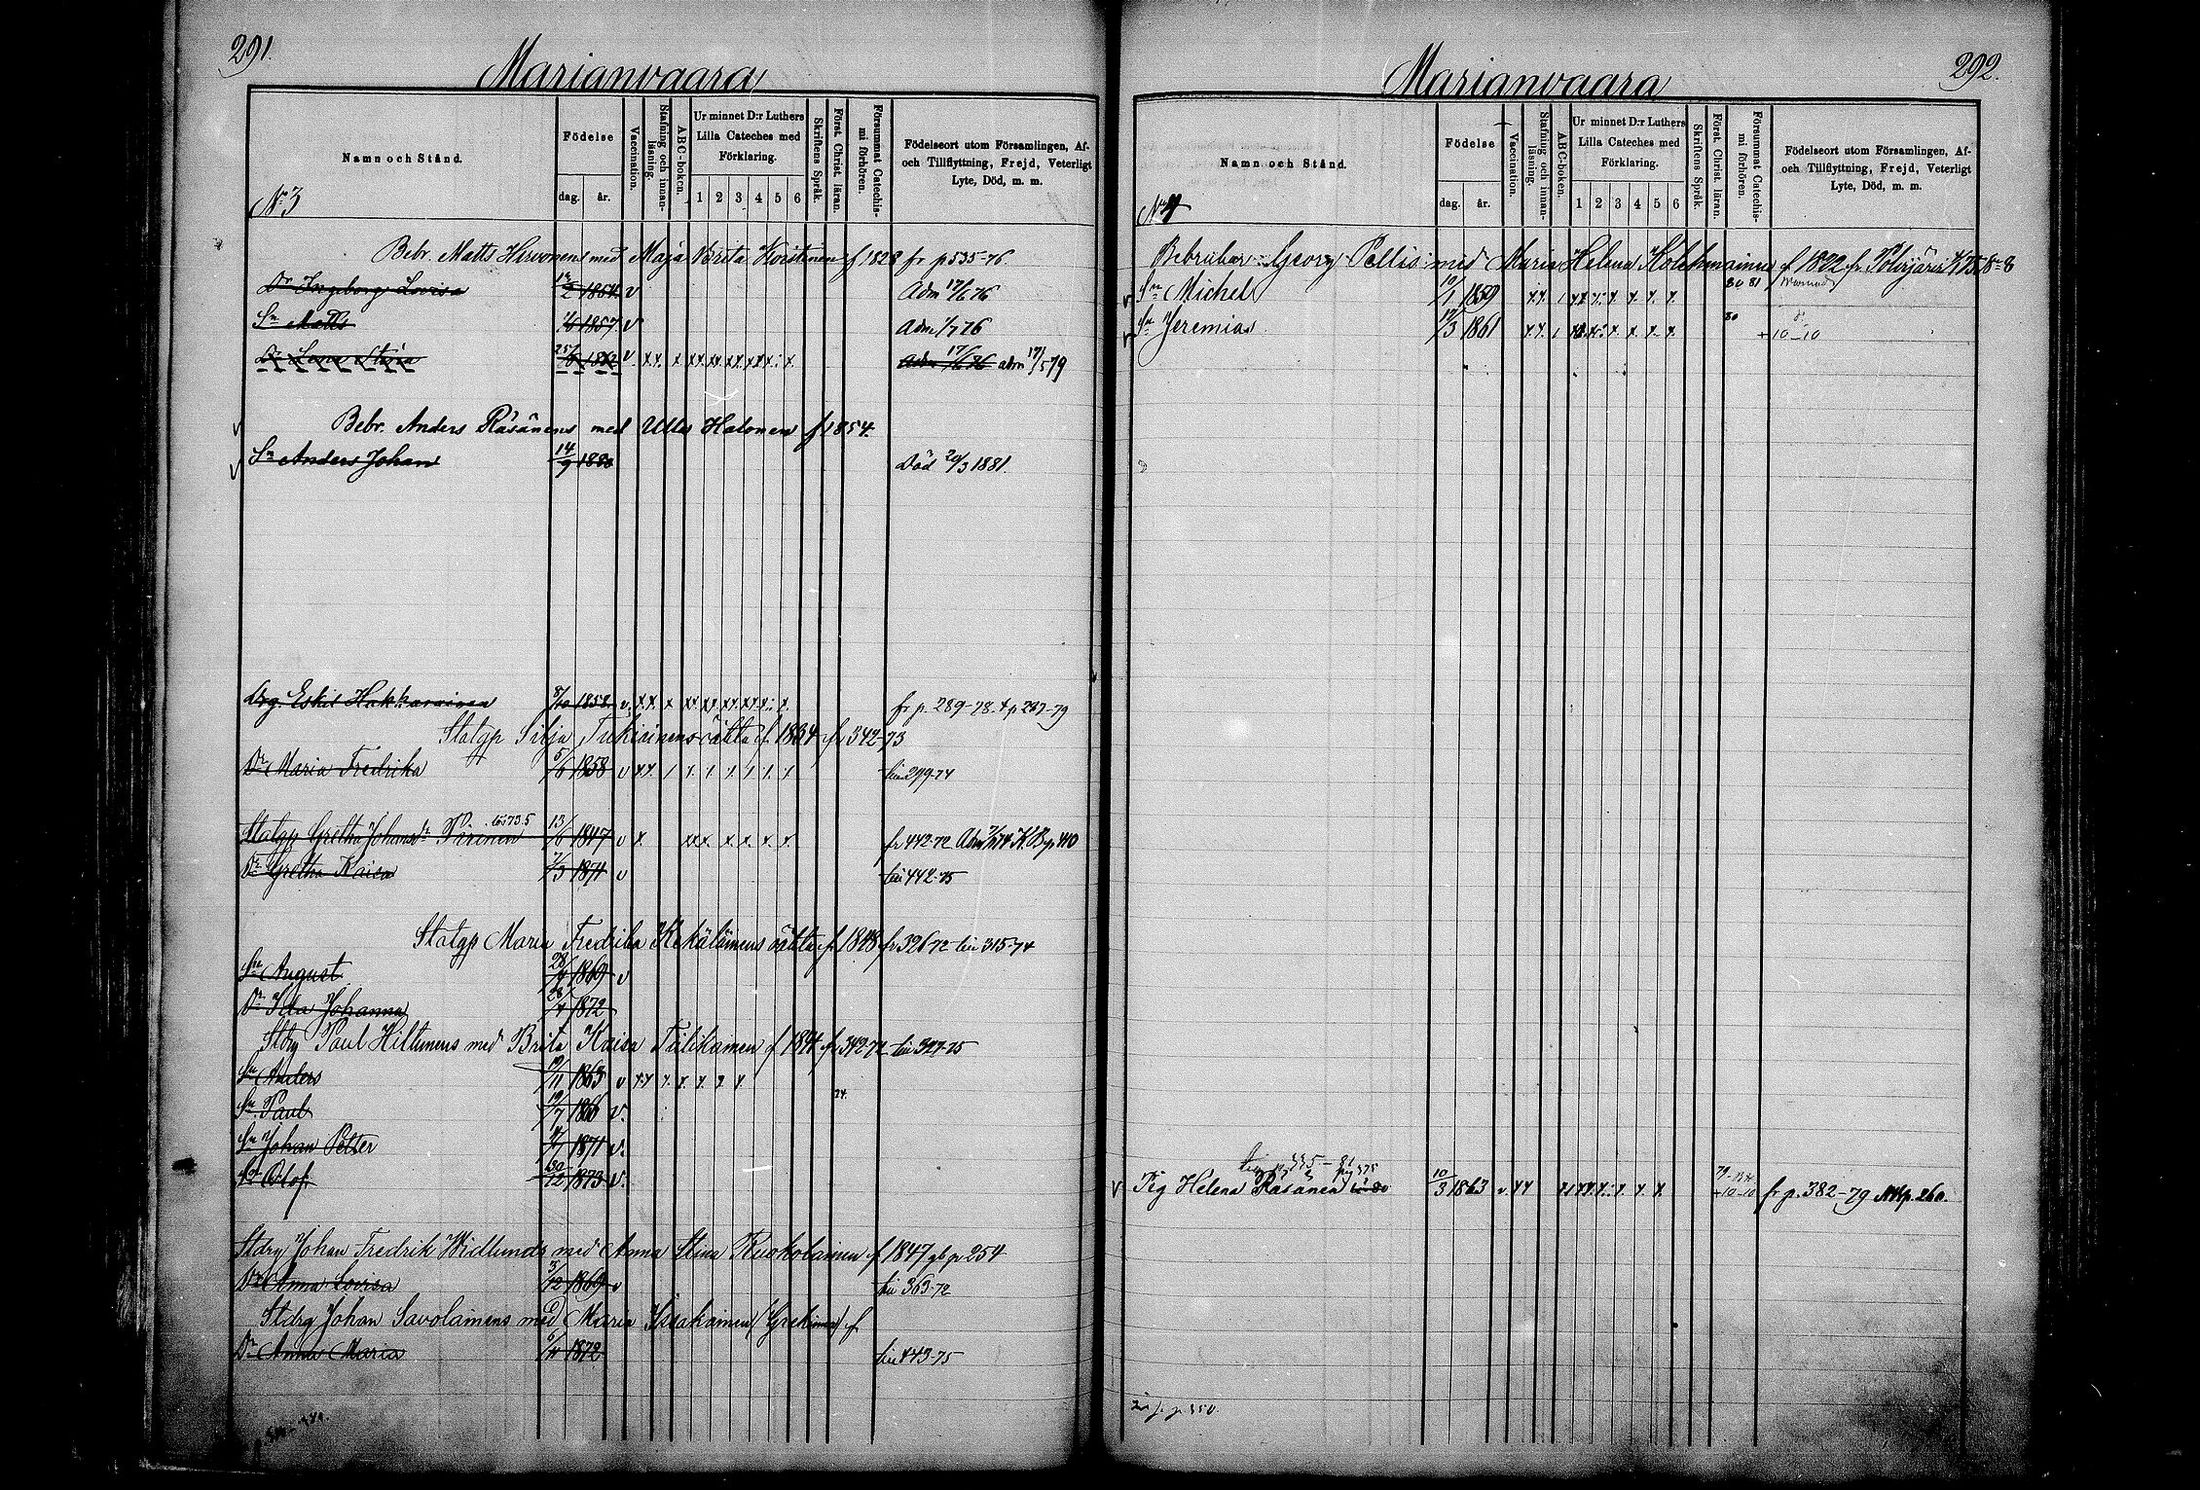 291.
Marianvaara
Namn och Stånd.
Födelse
dag. år.
Vaccination.
Stafning och innanläsning.
ABC-boken.
Ur minnet D:r Luthers Lilla Cateches med Förklaring.
1 2 3 4 5 6
Skriftens Språk.
Först. Christ. läran.
Försummat Catechismi förhören.
Födelseort utom Församlingen, Af- och Tillflyttning, Frejd, Veterligt Lyte, Död, m. m.
No 3
Bebr. Matts Hirvonens med Maja Brita f 1828 fr p 535-76
Dr Ingeborg Lovisa 1854 v Adm 17/6 76
Sn Matts 1857 v Adm 1/7 76
Dr Lena Stina 1862 v x x x xx xx xx xx x Adm 17/6 76 adm 17/5 79
Bebr. Anders Räsänens med Ulla Halonen f 1854.
Sn Anders Johan 14/9 1880 Död 20/3 1881.
Drg. Eskil Hakkarainen 8/10 1858 v. x x x xx xx xx xx x fr p. 289-78. t p 287-79
Statgp Silja Tukiainens oäkta f. 1834 fr 342-73
Dr Maria Fredrika 5/6 1858 v x x / x x x x x x
Statgp Gretha Johansdr Piironen 13/6 1847 v x xxx x x x x fr 442-72
Dr Gretha Kaisa 7/3 1871 v till 442-75
Statgp Maria Fredrika Kekäläinens oäkta f. 1848 fr 326-72 till 315-74
Sn August 28 1869 v
Dr Ida Johanna 28/4 1872
Stdrg Paul Hiltunens med Brita Kaisa Tiilikainen f fr 342-72 till 327-75
Sn Anders 1863 v x x x x x x
24.
Sn Paul 19/7 1866 v.
Sn Johan Petter 1871 v.
Sn Olof 30/12 1873 v.
Stdrg Johan Fredrik Widlunds med Anna Stina Ruokolainen f 1847 254
Dr Anna Lovisa 3/12 1869 v till 363-72
Stdrg Johan Savolainens med Maria Issakainen f
Dr Anna Maria 1872 till 443-75
292.
Marianvaara
Namn och Stånd.
Födelse
dag. år.
Vaccination.
Stafning och innanläsning.
ABC-boken.
Ur minnet D:r Luthers Lilla Cateches med Förklaring.
1 2 3 4 5 6
Skriftens Språk.
Först. Christ. läran.
Försummat Catechismi förhören.
Födelseort utom Församlingen, Af- och Tillflyttning, Frejd, Veterligt Lyte, Död, m. m.
No 4
Georg Pellis med Maria Helena Kolehmainen f 1822 fr Polvijärvi
Sn Michel 10/1 1859 x x / 80 81
Sn Jeremias 17/3 1861 x x / 80 + 10-10
Pig Helena Räsänen 10/3 1863 v x x +10-10 fr p. 382-79 p. 260.